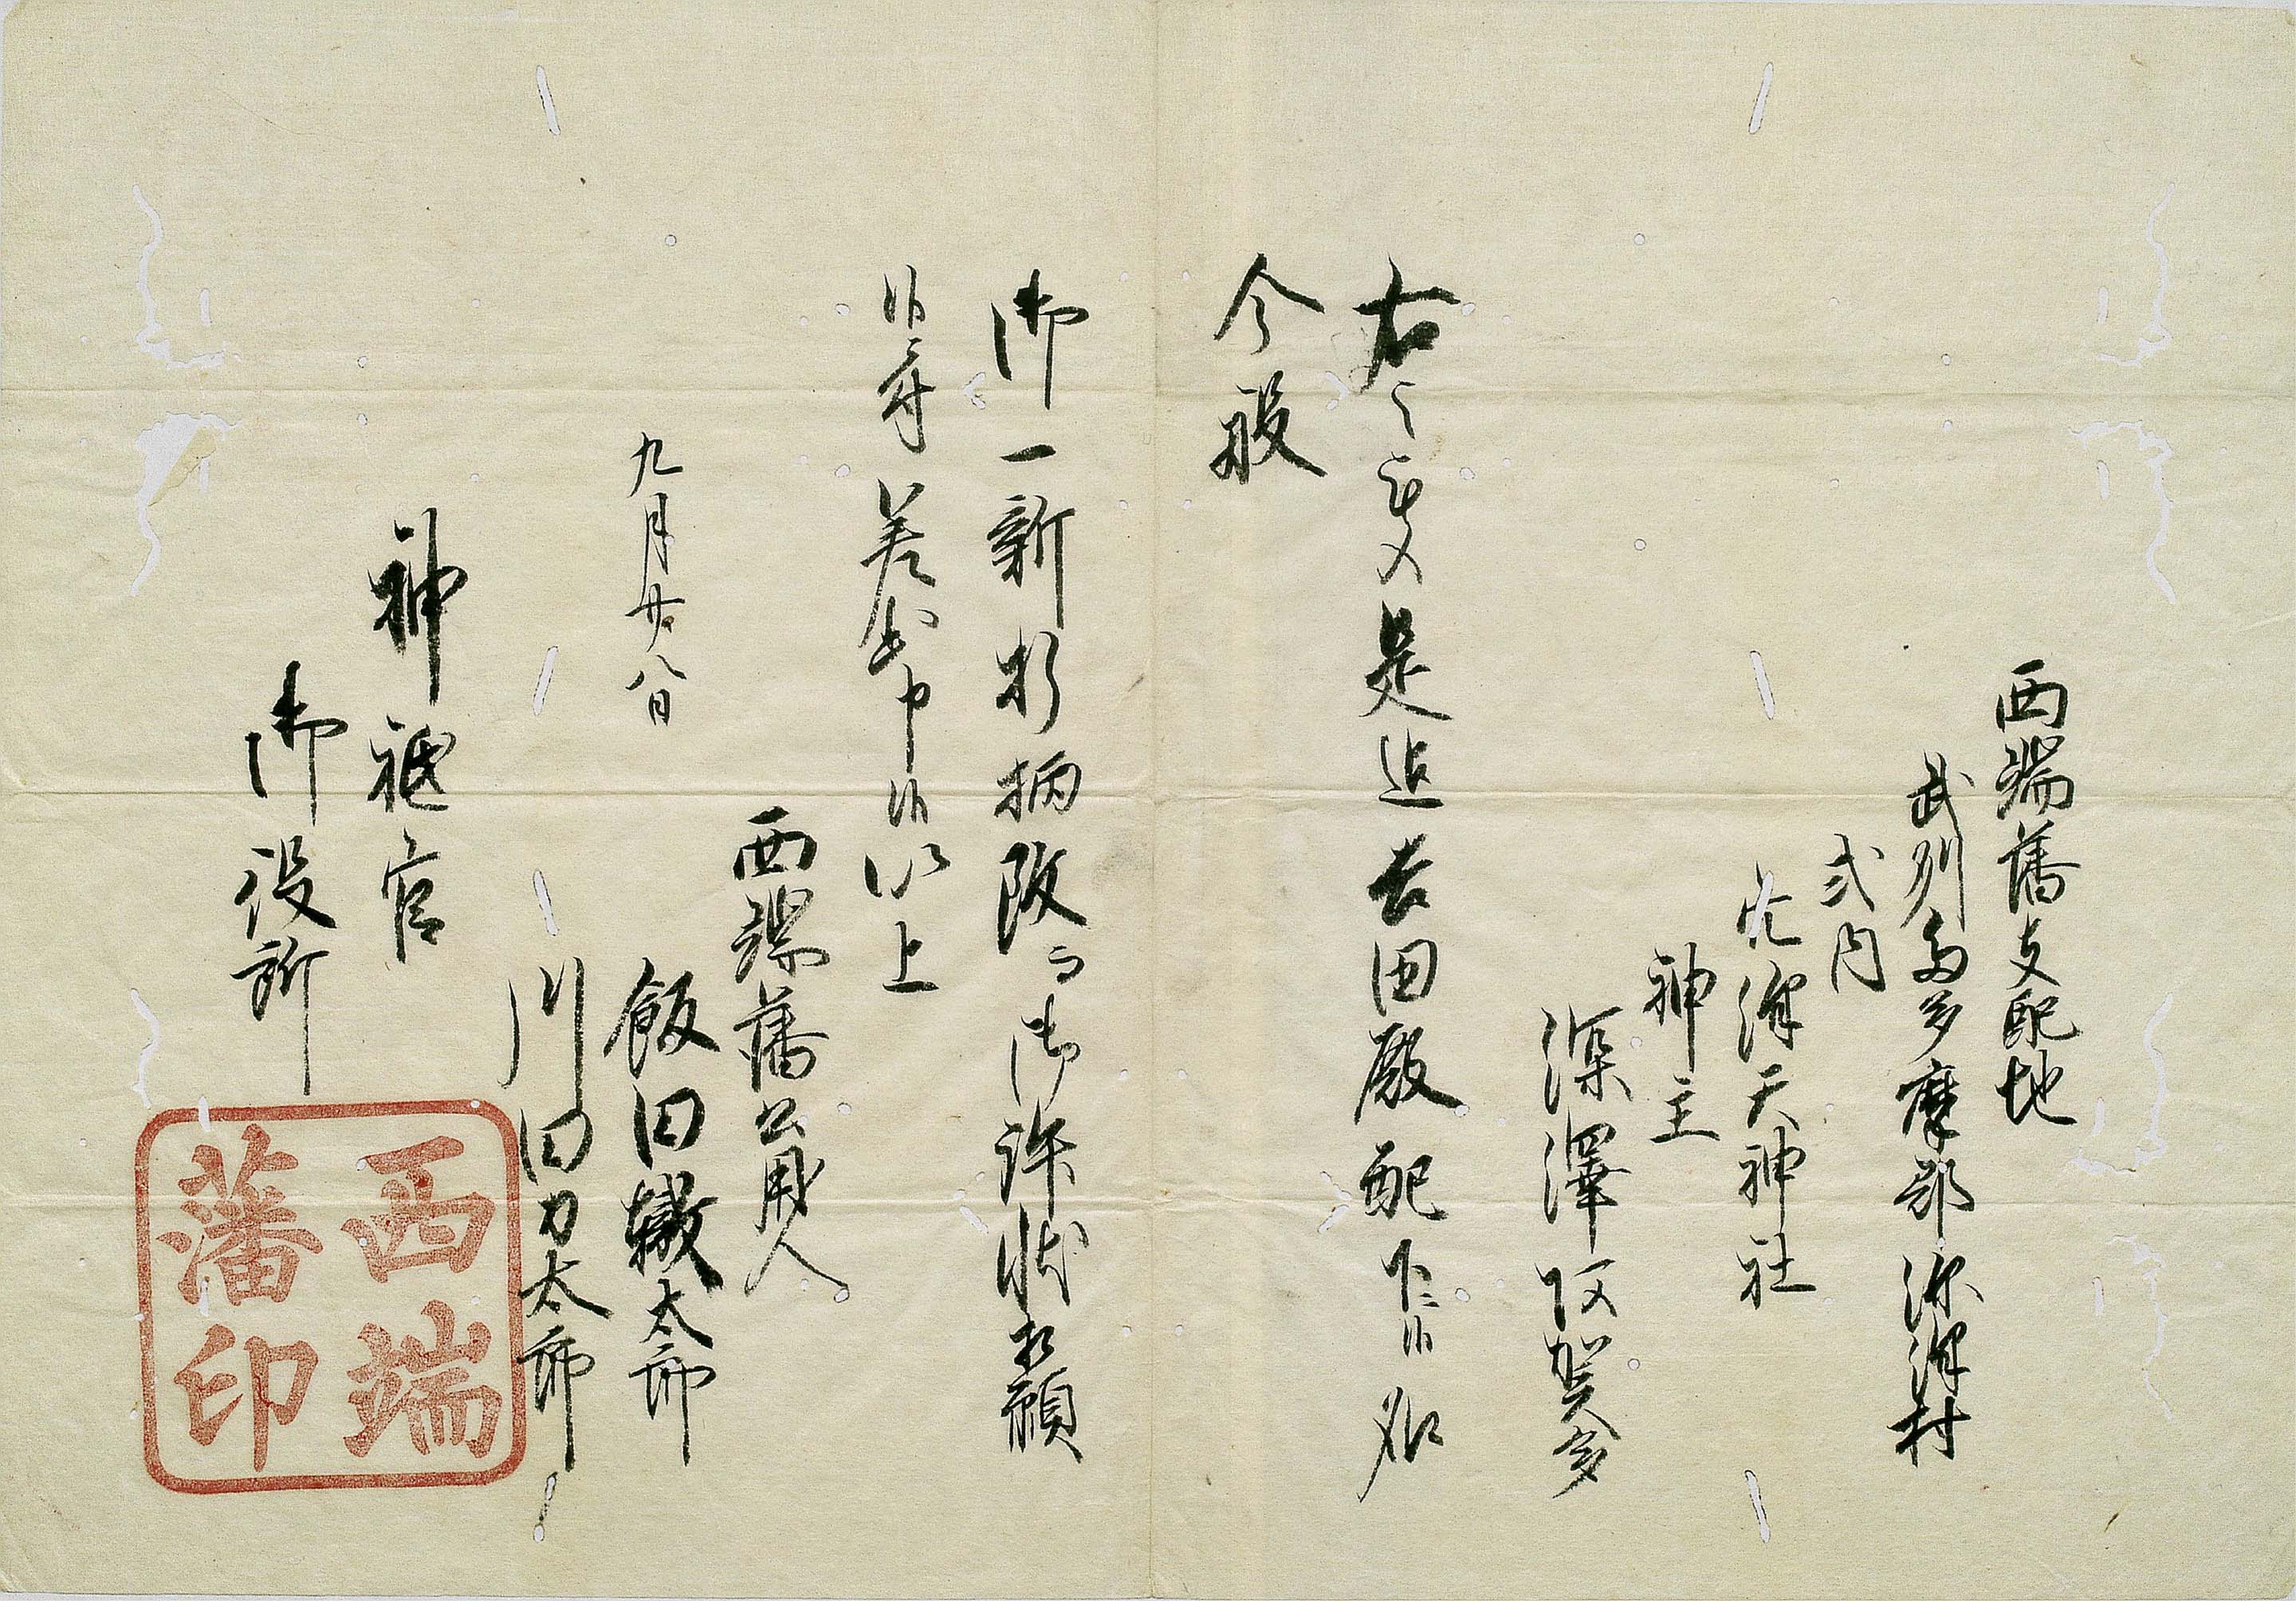 西端藩支配地
武州多摩郡深澤村
式内
穴澤天神社
神主
深澤阿賀多
右之者是迄吉田殿配下ニ候処
今般
御一新ニ付改而御許状相願
候ニ付差出申候以上
九月廿八日
西端藩公用人
飯田轍太郎
川田力太郎
神祇官
御役所
西端
藩印